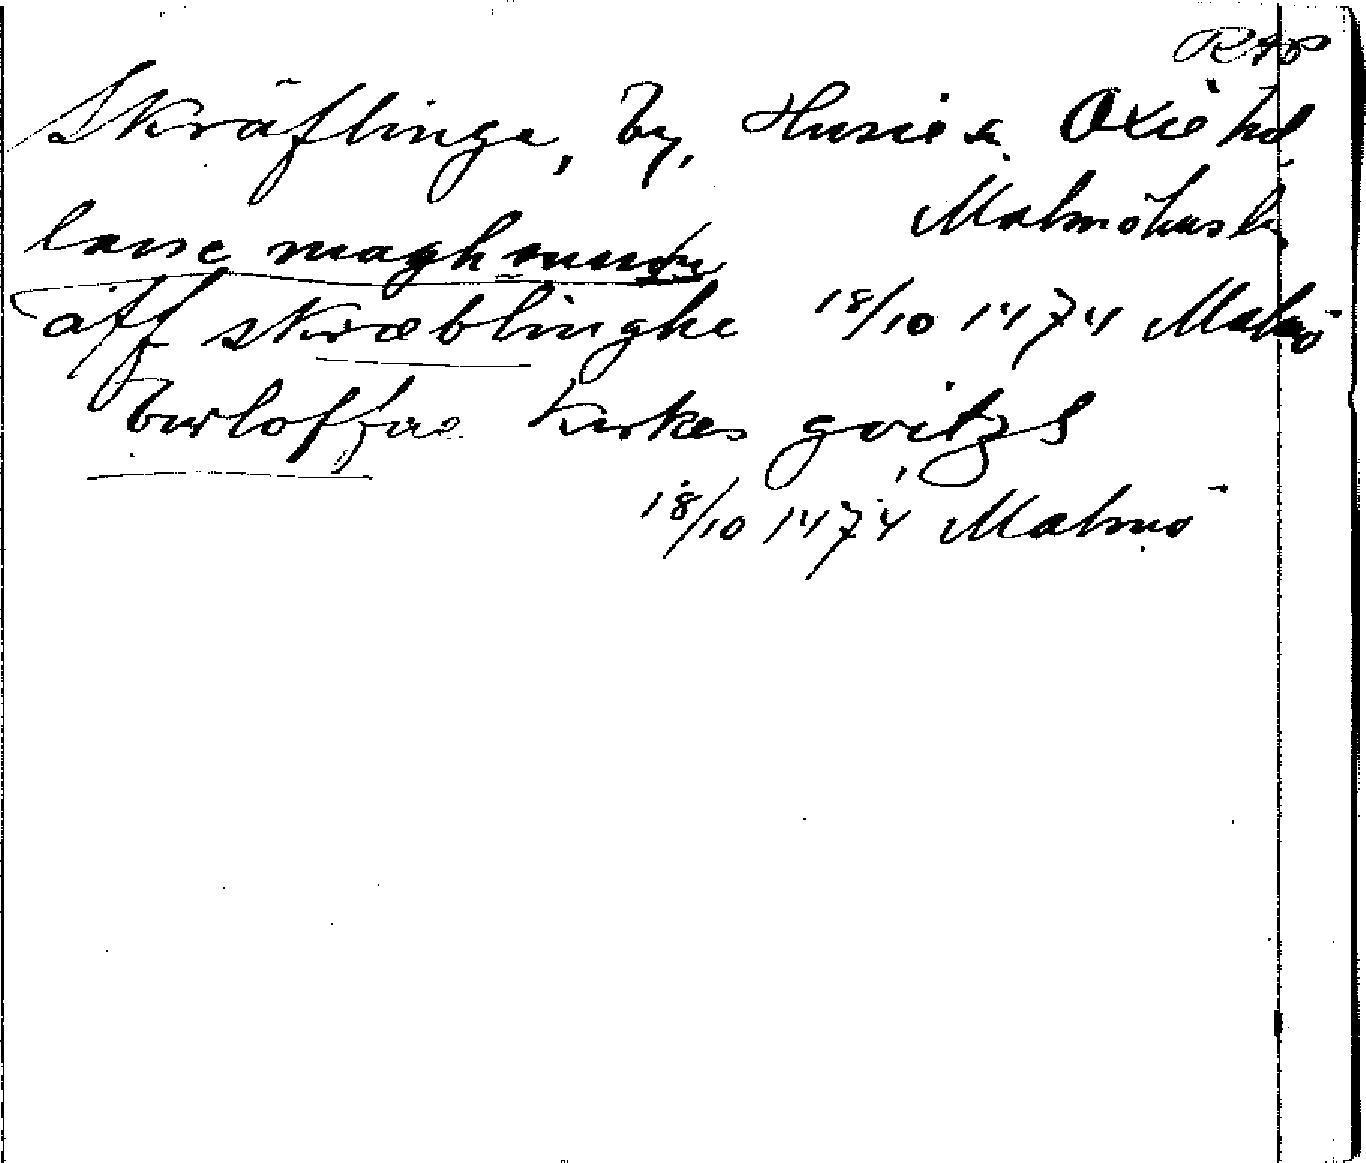 RAP
Skräflinge, by, Husie s. Oxie hd
Malmöhus l.
lasse maghnuus
aff skræblinghe 18/10 1474 Malmö
burloffue kirkes goitzs
18/10 1474 Malmö